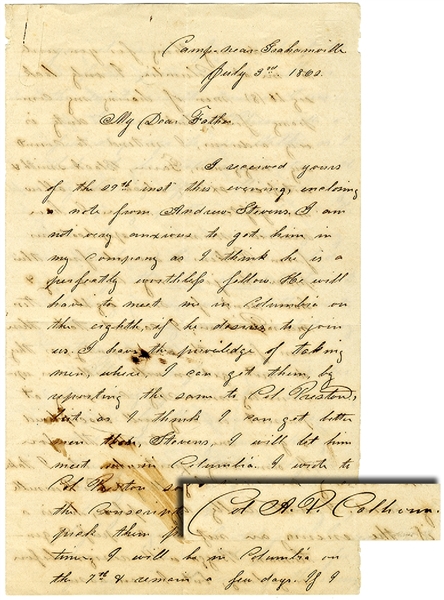 Camp near Grahamville
July 3rd 1862.
My Dear Father
I received yours
of the 27th inst this evening, enclosing
a note from Andrew Stevens. I am
not very anxious to get him in
my company as I think he is a
perfectly worthless fellow. He will
have to meet me in Columbia on
the eighth, if he desires to join
us. I have the priviledge of taking
men, where I can get them by
reporting the same to Col Preston,
but as I think I can get better
men than Stevens, I will let him
meet me in Columbia. I wrote to
Col Preston
the Conscripts
pick them
time. I will be in Columbia on
the 7th & remain a few days. If I
Col A. P. Calhoun.